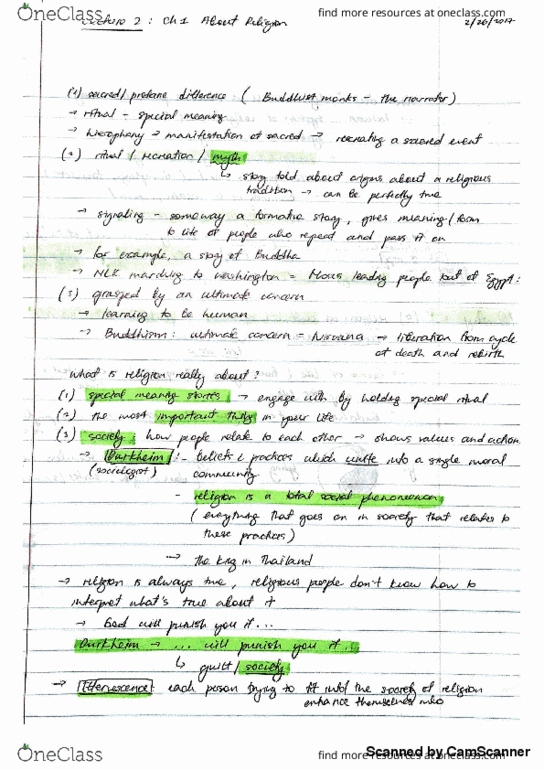 OneClass
find more resources at oneclass.com
Lecture 2 : Ch 1 About Religion
2/26/2017
(1) sacred/ profane difference : ( Buddhist monks - the narrator )
→ ritual - special meaning
→ hierophany → manifestation of sacred → recreating a sacred event
(2) ritual / recreation / myth
↳ story told about origins about a religious
tradition → can be perfectly true
→ signaling - someway a formative story , gives meaning / form
to life of people who repeat and pass it on
→ for example, a story of Buddha
→ MLK marching to Washington = Moses leading people out of Egypt :
(3) grasped by an ultimate concern
→ learning to be human
→ Buddhism : ultimate concern = Nirvana → liberation from cycle
of death and rebirth
what is religion really about ?
(1) special meaning stories → engage with by holding special ritual
(2) the most important thing in your life
(3) society : how people relate to each other → shows values and action
→ Durkheim : - beliefs & practices which unite into a single moral
(sociologist) community
- religion is a total social phenomenon
( everything that goes on in society that relates to
these practices )
→ the king in Thailand
→ religion is always true , religious people don't know how to
interpret what's true about it
→ God will punish you if ...
Durkheim → ... will punish you if ...
↳ guilt / society
→ Effervescence : each person trying to fit into the society of religion
enhance themselves into
Scanned by CamScanner
OneClass
find more resources at oneclass.com